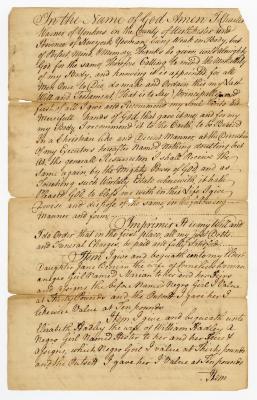 In the Name of God Amen I Charles
Warner of Yonkers in the County of Westchester and
Province of Newyork Yeoman, being Weak in Body, but
of Perfect Mind & Memory Thanks be given unto Almighty
God for the same Therefore Calling to mind the Mortality
of my Body, and knowing it is appointed for all
Men Once to Die, do make and Ordain this my Last
Will and Testament That is to Say Principally and
first of all I give and Recommend my Soul into the
Mercifull Hands of God, that gave it me, and for my
my Body I recommend it to the Earth, to be Buried
In a Christian like and Decent Manner at the Discretion
of my Executors hereafter Named Nothing doubting but
at the general Resurrection I shall Receive the
Same again by the Mighty Power of God and as
Touching such Worldly Estate wherewith, it hath
Pleased God to bless me with in this Life I give
Devise and dispose of the same in the following
Manner and form
Imprimis It is my Will and
I do Order that in the first Place, all my Just Debts
and Funeral Charges, be paid and fully Satisfied
Item I give and bequeath unto my Eldest
Daughter Jane the wife of
a negro Girl Named Marian to her and her Heirs
and assigns the before Named Negro Girl I Value
at Thirty Pounds and the Outsett I gave her I
likewise Value at Ten pounds
Item I give and bequeath unto
Elizabeth Hadley the wife of William Hadley A
Negro Girl Named Hester to her and her Heirs &
Assigns, which Negro Girl I value at Thirty pounds
and the Outsett I gave her I Value at Ten pounds
Item